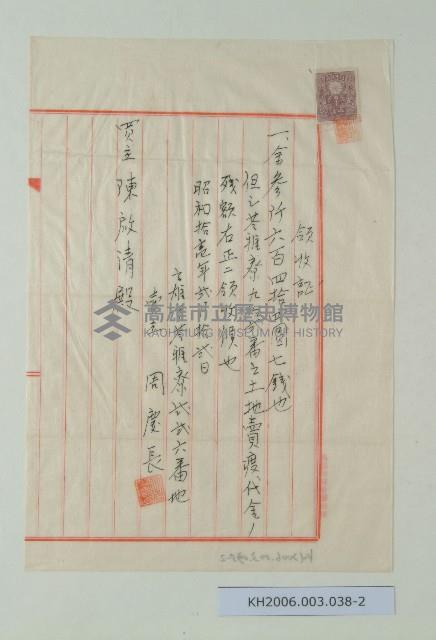 領收証
一金參阡六百四拾 圓七錢也
但シ苓雅寮九 番ノ土地賣渡代金ノ
残額右正ニ領收候也
昭和拾壹年貳 拾貳日
高雄 苓雅寮貳貳六番地
賣主 周慶長
買主 陳啟清殿
高雄市立歷史博物館
KAOHSIUNG MUSEUM OF HISTORY
KH2006.003.038-2